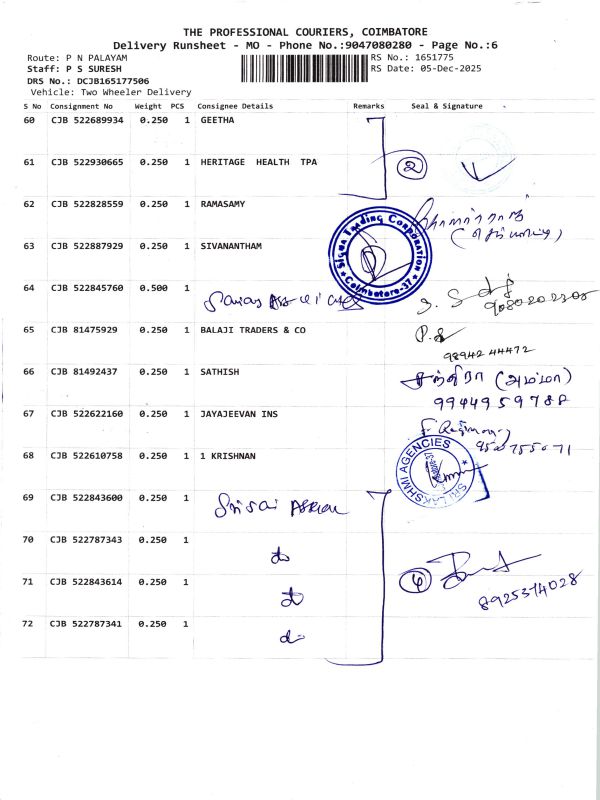 THE PROFESSIONAL COURIERS, COIMBATORE
Delivery Runsheet - MO - Phone No.:9047080280 - Page No.:6
Route: P N PALAYAM RS No.: 1651775
Staff: P S SURESH RS Date: 05-Dec-2025
DRS No.: DCJB165177506
Vehicle: Two Wheeler Delivery
S No Consignment No Weight PCS Consignee Details Remarks Seal & Signature
60 CJB 522689934 0.250 1 GEETHA
61 CJB 522930665 0.250 1 HERITAGE HEALTH TPA 2
62 CJB 522828559 0.250 1 RAMASAMY
63 CJB 522887929 0.250 1 SIVANANTHAM
Signa Trading Corporation
Coimbatore-37
64 CJB 522845760 0.500 1
65 CJB 81475929 0.250 1 BALAJI TRADERS & CO P.S
98942 44472
66 CJB 81492437 0.250 1 SATHISH சந்திரா (அம்மா)
9944959788
67 CJB 522622160 0.250 1 JAYAJEEVAN INS
68 CJB 522610758 0.250 1 1 KRISHNAN
SRI LAKSHMI AGENCIES
69 CJB 522843600 0.250 1
70 CJB 522787343 0.250 1 do
71 CJB 522843614 0.250 1 do 4
8925374028
72 CJB 522787341 0.250 1 do